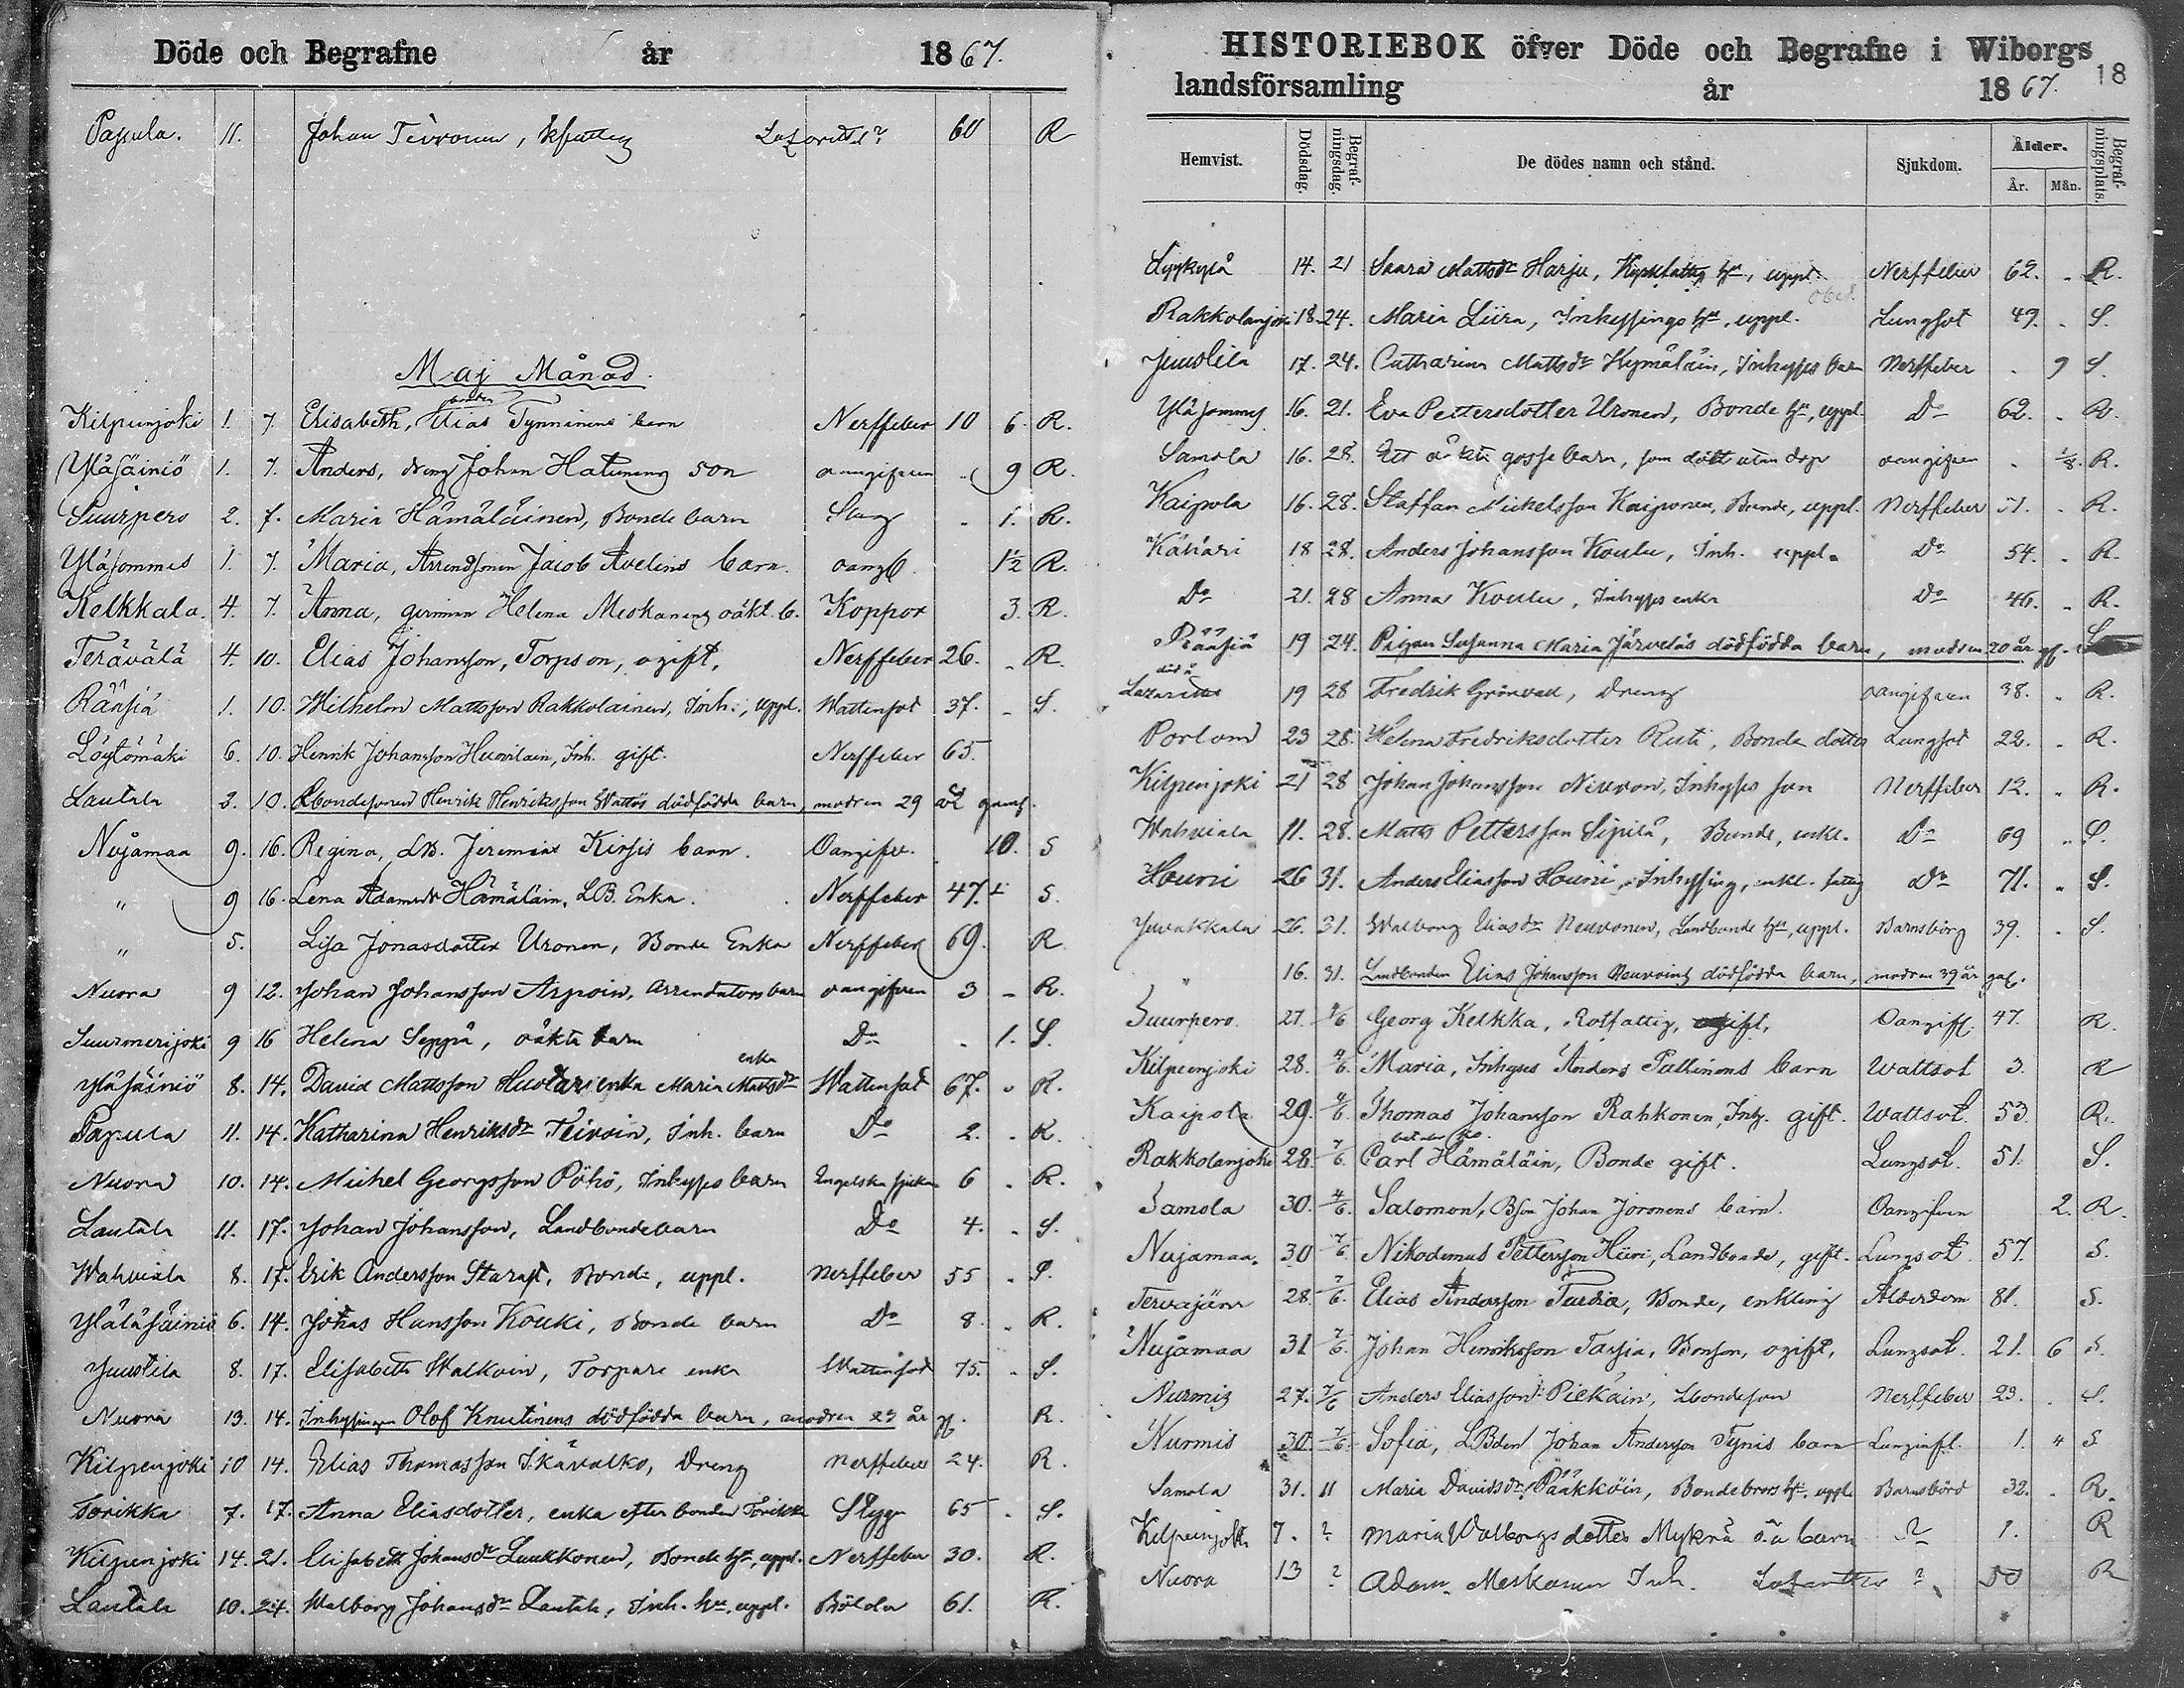 Döde och Begrafne år 1867.
Papula. 11. Johan Teivonen, 60 R
Maj Månad.
bonden
Kilpeenjoki 1. 7. Elisabeth, Elias Tynninens barn Nerffeber 10 6. R.
Yläsäiniö 1. 7. Anders, dreng Johan Hatunens son oangifven 9 R.
Suurpero 2. 7. Maria Hämäläinen, Bonde barn Slag - 1. R.
Yläsommes 1. 7. Maria, Jacob Avelins barn. oangf. 1½ R.
Kelkkala. 4. 7. Anna, Helena Meskanens oäkt. b. Koppor 3. R.
Terävälä 4. 10. Elias Johansson, Torpson, ogift, Nerffeber 26. - R.
Ränsiä 1. 10. Wilhelm Mattsson Rakkolainen, Inh., uppl. Wattensot 37. - S.
Löytömäki 6. 10. Henrik Johansson Inh. gift. Nerffeber 65.
Lautala 3. 10. Henrik Henriksson dödfödda barn, modren 29 år gaml.
Nujamaa 9. 16. Regina, LB. Jeremias Kirsis barn. Oangifv. 10. S
" 9 16. Lena Adamsdr Hämäläin, LB. Enka. Nerffeber 47. S.
" 5. Lisa Jonasdotter Uronen, Bonde Enka Nerffeber 69. R
Nuora 9 12. Johan Johansson Arpoin, Arrendators barn oangifven 3 - R.
Suurmerijoki 9 16 Helena Seppä, oäkta barn Do - 1. S.
enka
Yläsäiniö 8. 14. David Mattsson enka Maria Mattsdr Wattensot 67. - R.
Papula 11. 14. Katharina Henriksdr Teivoin, Inh. barn Do 2. - R.
Nuora 10. 14. Michel Georgsson Pöhö, Inhyses barn Engelska sjukan 6 - R.
Lautala 11. 17. Johan Johansson, Landbondebarn Do 4. - S.
Wahviala 8. 17. Erik Andersson Starast, Bonde, uppl. Nerffeber 55 - S.
Yläsäiniö 6. 14. Johas Hansson Kouki, Bonde barn Do 8. - R.
Juustila 8. 17. Elisabeth Walkoin, Torpare enka Wattensot 75. - S.
Nuora 13. 14. Inhysingen Olof Knutinens dödfödda barn, modren 23 år gl. R.
Kilpeenjoki 10 14. Elias Thomasson Ikävalko, Dreng Nerffeber 24. R.
Torikka 7. 17. Anna Eliasdotter, enka efter bonden Torikka Stygn 65 - S.
Kilpeenjoki 14. 21. Elisabeth Johansdr Luukkonen, Bonde hu, uppl. Nerffeber 30. R.
Lautala 10. 24. Walborg Johansdr Lautala, Inh. hu, uppl. Bölder 61. R.
HISTORIEBOK öfver Döde och Begrafne i Wiborgs
landsförsamling år 1867. 18
Hemvist. Dödsdag. Begrafningsdag. De dödes namn och stånd. Sjukdom. Ålder. År. Mån. Begrafningsplats.
14. 21 Saara Mattsdr Harju, hu, uppl. Nerffeber 62. - R.
Rakkolanjoki 18. 24. Maria Liira, Inhysings hu, uppl. Lungsot 49. - S.
Juustila 17. 24. Catharina Mattsdr Hymäläin, Inhyses barn Nerffeber - 9 S.
Yläsommes 16. 21. Eva Pettersdotter Uronen, Bonde hu, uppl. Do 62. - R.
Samola 16. 28. Ett oäkta gossebarn, som dött utan dop oangifven - 1/8. R.
Kaipola 16. 28. Staffan Michelsson Kaiponen, Bonde, uppl. Nerffeber 51. - R.
Kähäri 18 28. Anders Johansson Koulu, Inh. uppl. Do 54. - R.
Do 21. 28 Anna Koulu, Inhyses enka Do 46. - R.
Räänsiä 19 24. Pigan Susanna Maria Järveläs dödfödda barn, modren 20 år gl. S
död å
Lazarettet 19 28 Fredrik Grönvall, Dreng oangifven 38. - R.
Porlom 23 28. Helena Fredriksdotter Ruti, Bonde dotter Lungsot 22. - R.
Kilpeenjoki 21 28 Johan Johansson Neuvon, Inhyses son Nerffeber 12. - R.
Wahviala 11. 28. Matts Pettersson Sipilä, Bonde, enkl. Do 69 - S.
Houni 26 31. Anders Eliasson Houni, Inhysing, enkl. fattig Do 71. - S.
Juvakkala 26. 31. Walborg Eliasdr Neuvonen, Landbonde hu, uppl. Barnsbörd 39. - S.
" 16. 31. Landbonden Elias Johansson Neuvoins dödfödda barn, modren 39 år gl.
Suurpero 27. 4/6 Georg Kelkka, Rotfattig, ogift, Oangift. 47. R.
Kilpeenjoki 28. 4/6. Maria, Inhyses Anders Pullinens barn Wattsot 3. R
Kaipola 29. 4/6. Thomas Johansson Rahkonen, Inh. gift. Wattsot. 53. R.
Rakkolanjoki 28. 7/6. Carl Hämäläin, Bonde gift. Lungsot. 51. S.
Samola 30. 4/6. Salomon, Bson Johan Joronens barn. Oangifven 2. R.
Nujamaa. 30 7/6. Nikodemus Pettersson Hiiri, Landbonde, gift. Lungsot. 57. S.
Tervajärvi 28. 7/6. Elias Andersson Turkia, Bonde, enkling Ålderdom 81. S.
Nujamaa 31 7/6. Johan Henriksson Tarsia, Bonson, ogift, Lungsot. 21. 6 S.
Nurmis 27. 7/6 Anders Eliasson Piekäin, Lbondeson Nerffeber 23. - S.
Nurmis 30. 7/6. Sofia, LBden Johan Andersson Tynis barn Lunginfl. 1. " S
Samola 31. 11 Maria Davidsdr Pääkköin, Bondebrors hu, uppl. Barnsbörd 32. - R.
Kilpeenjoki 7. ? Maria Walborgs dotter Mykrä o.ä barn ? 1. R
Nuora 13 ? Adam Meskanen Inh. ? 50 R